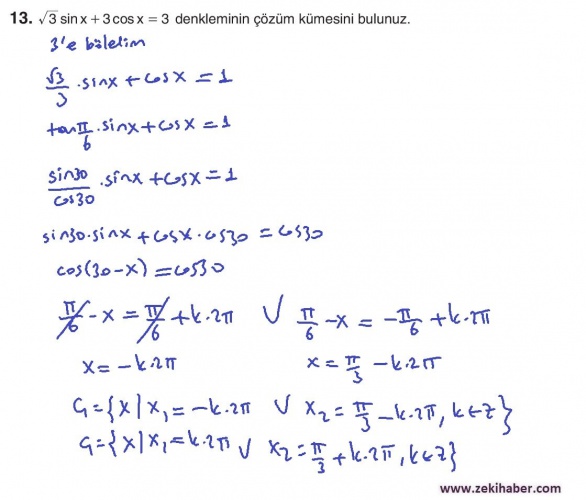 13. √3 sin x + 3 cos x = 3 denkleminin çözüm kümesini bulunuz.
3'e bölelim
√3/3 · sinx + cosx = 1
tan π/6 · sinx + cosx = 1
sin30/cos30 · sinx + cosx = 1
sin30 · sinx + cosx · cos30 = cos30
cos(30-x) = cos30
π/6 - x = π/6 + k·2π ∨ π/6 - x = -π/6 + k·2π
x = -k·2π x = π/3 - k·2π
Ç = {x | x₁ = -k·2π ∨ x₂ = π/3 - k·2π, k∈Z}
Ç = {x | x₁ = k·2π ∨ x₂ = π/3 + k·2π, k∈Z}
www.zekihaber.com